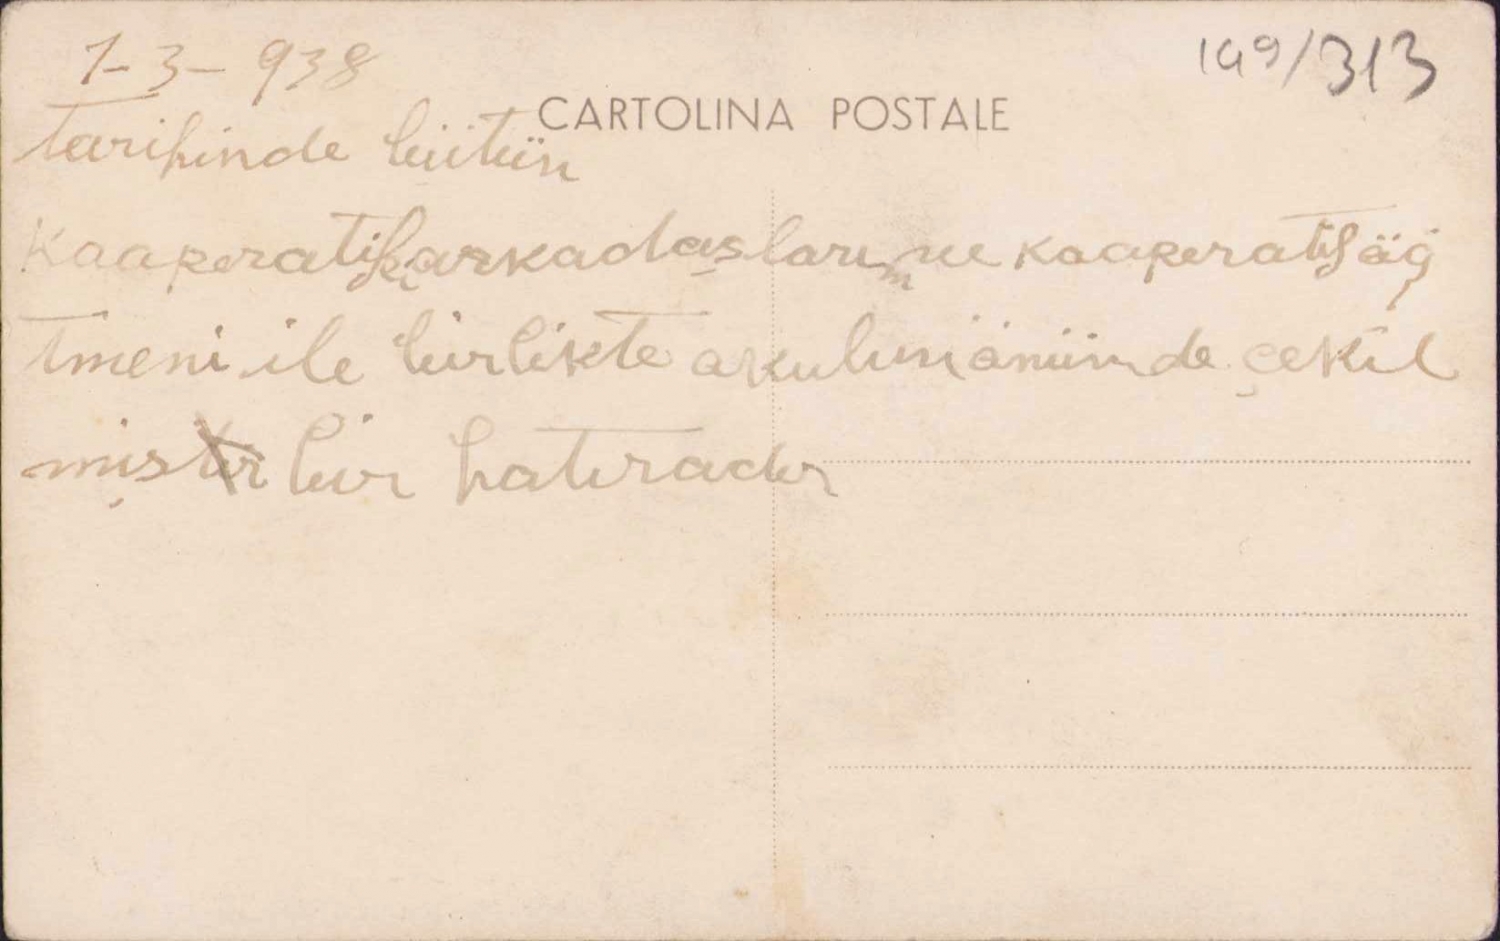 199/313
1-3-938
CARTOLINA POSTALE
tarihinde bütün
Kooperatif arkadaşları ve kooperatif öğ
tmeni ile birlikte okulun önünde çekil
miş bir hatıradır